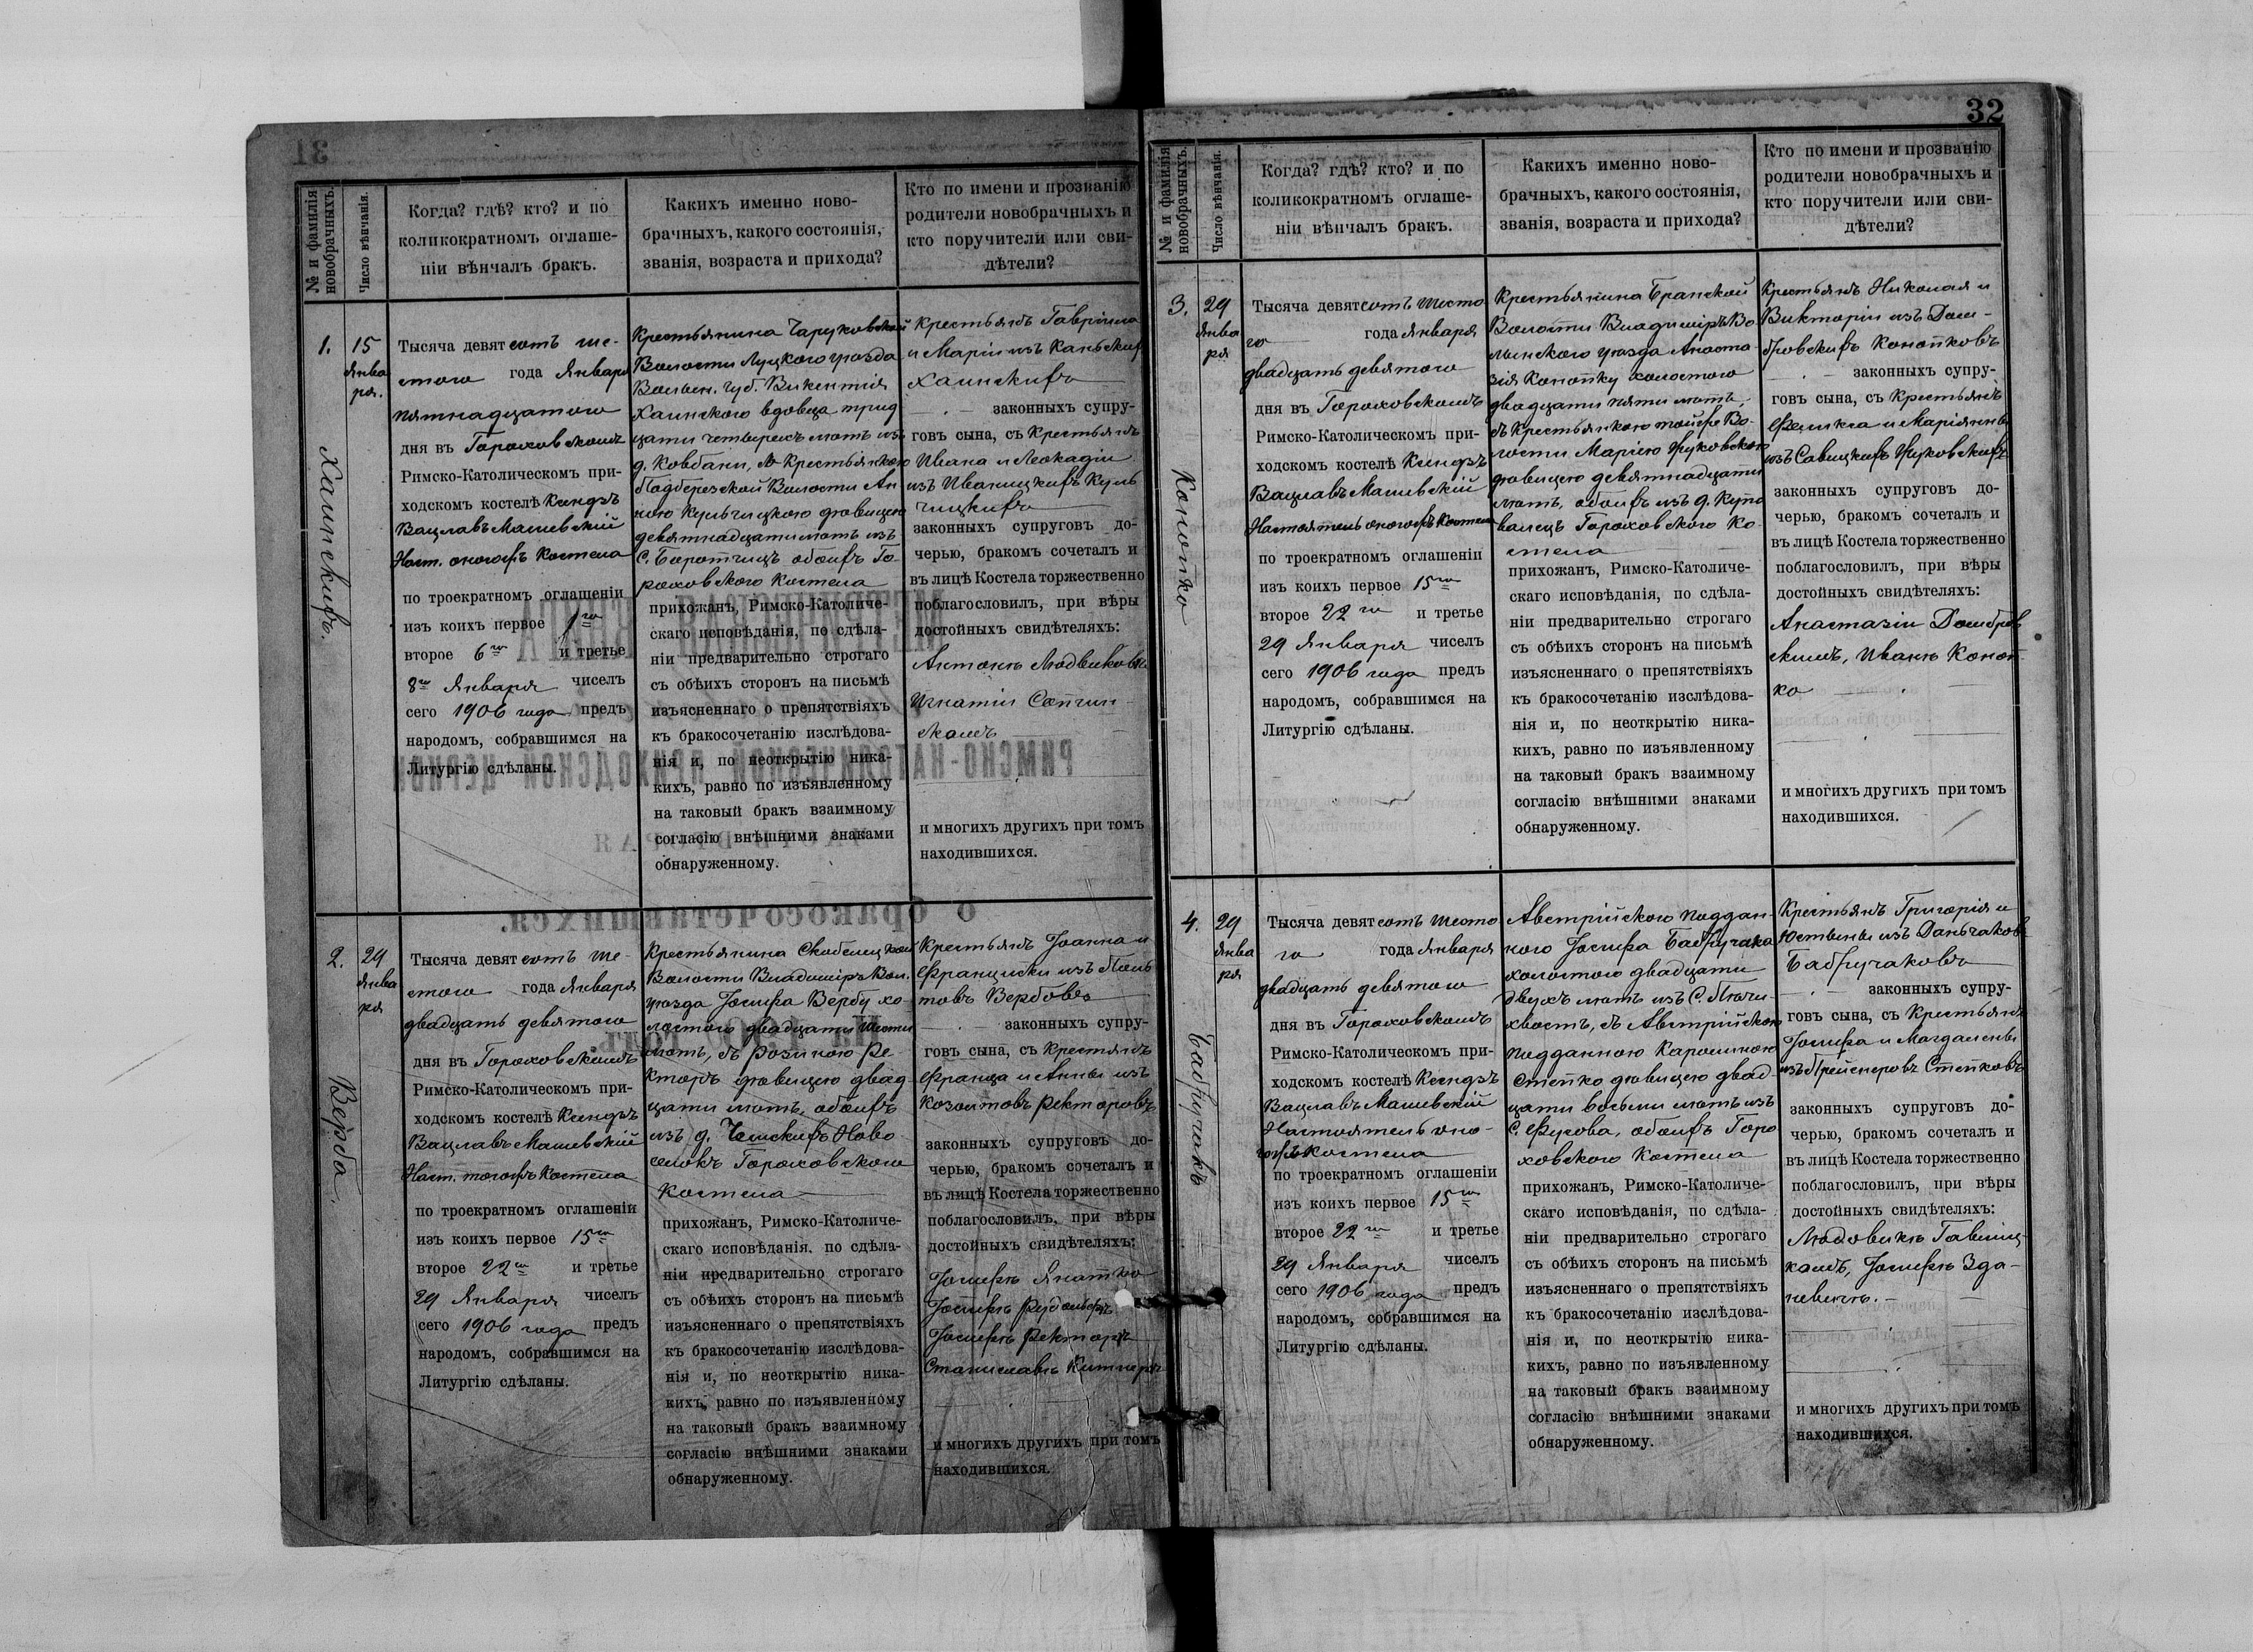 32
№ и фамилія
новобрачныхъ.
Число вѣнчанія.
Когда? гдѣ? кто? и по
коликократномъ оглаше-
ніи вѣнчалъ бракъ.
Какихъ именно ново-
брачныхъ, какого состоянія,
званія, возраста и прихода?
Кто по имени и прозванію
родители новобрачныхъ и
кто поручители или сви-
дѣтели?
1.
Халинскихъ.
15
Янва
ря.
Тысяча девятсотъ ше-
стого года Января
пятнадцатого
дня въ Гороховскомъ
Римско-Католическомъ при-
ходскомъ костелѣ Ксендзъ
Вацлавъ Машевскій
Наст. оногожъ Костела
по троекратномъ оглашеніи
изъ коихъ первое 1го
второе 6го и третье
8го Января чиселъ
сего 1906 года предъ
народомъ, собравшимся на
Литургію сдѣланы.
Крестьянина Чаруковской
Волости Луцкого уѣзда
Волын. губ. Викентія
Халинского вдовца трид
цати четырехъ лѣтъ изъ
д. Ковбани, съ Крестьянкою
Подберезской Волости Ан
ною Кульчицкою дѣвицею
девятнадцати лѣтъ изъ
с. Боротчицъ обоихъ Го-
роховского Костела
прихожанъ, Римско-Католиче-
скаго исповѣданія, по сдѣла-
ніи предварительно строгаго
съ обѣихъ сторонъ на письмѣ
изъясненнаго о препятствіяхъ
къ бракосочетанію изслѣдова-
нія и, по неоткрытію ника-
кихъ, равно по изъявленному
на таковый бракъ взаимному
согласію внѣшними знаками
обнаруженному.
Крестьянъ Гавріила
и Маріи изъ
Халинскихъ
законныхъ супру-
говъ сына, съ Крестьянъ
Ивана и Леокадіи
изъ Иваницкихъ Куль
чицкихъ
законныхъ супруговъ до-
черью, бракомъ сочеталъ и
въ лицѣ Костела торжественно
поблагословилъ, при вѣры
достойныхъ свидѣтеляхъ:
Антонѣ
Игнатіи
и многихъ другихъ при томъ
находившихся.
2.
Верба.
29
Янва
ря
Тысяча девятсотъ ше-
стого года Января
двадцать девятого
дня въ Гороховскомъ
Римско-Католическомъ при-
ходскомъ костелѣ Ксендзъ
Вацлавъ Машевскій
Наст. тогожъ Костела
по троекратномъ оглашеніи
изъ коихъ первое 15го
второе 22го и третье
29 Января чиселъ
сего 1906 года предъ
народомъ, собравшимся на
Литургію сдѣланы.
Крестьянина Скобелецкой
Волости Владимір. Вол.
уѣзда Іосифа Вербу хо-
лостого двадцати шести
лѣтъ, съ Розиною Ре-
кторъ дѣвицею двад-
цати лѣтъ, обоихъ
изъ д. Чешскихъ Ново
селокъ Гороховского
Костела
прихожанъ, Римско-Католиче-
скаго исповѣданія, по сдѣла-
ніи предварительно строгаго
съ обѣихъ сторонъ на письмѣ
изъясненнаго о препятствіяхъ
къ бракосочетанію изслѣдова-
нія и, по неоткрытію ника-
кихъ, равно по изъявленному
на таковый бракъ взаимному
согласію внѣшними знаками
обнаруженному.
Крестьянъ Іоанна и
Францишки изъ
Вербовъ
законныхъ супру-
говъ сына, съ Крестянъ
Франца и Анны изъ
Ректоровъ
законныхъ супруговъ до-
черью, бракомъ сочеталъ и
въ лицѣ Костела торжественно
поблагословилъ, при вѣры
достойныхъ свидѣтеляхъ:
Іосифѣ
Іосифѣ Рудольфъ
Іосифѣ Ректоръ
Станиславѣ
и многихъ другихъ при томъ
находившихся.
№ и фамилія
новобрачныхъ.
Число вѣнчанія.
Когда? гдѣ? кто? и по
коликократномъ оглаше-
ніи вѣнчалъ бракъ.
Какихъ именно ново-
брачныхъ, какого состоянія,
званія, возраста и прихода?
Кто по имени и прозванію
родители новобрачныхъ и
кто поручители или сви-
дѣтели?
3.
Конопко
29
Янва
ря
Тысяча девятсотъ шесто
го года Января
двадцать девятого
дня въ Гороховскомъ
Римско-Католическомъ при-
ходскомъ костелѣ Ксендзъ
Вацлавъ Машевскій
Настоятель оногожъ Костела
по троекратномъ оглашеніи
изъ коихъ первое 15го
второе 22го и третье
29 Января чиселъ
сего 1906 года предъ
народомъ, собравшимся на
Литургію сдѣланы.
Крестьянина Бранской
Волости Владиміръ Во
лынского уѣзда Анаста
зія Конопку холостого
двадцати пяти лѣтъ,
съ Крестьянкою тойже Во-
лости Маріею Жуковскою
дѣвицею девятнадцати
лѣтъ, обоихъ изъ д. Купо
валецъ Гороховского Ко-
стела
прихожанъ, Римско-Католиче-
скаго исповѣданія, по сдѣла-
ніи предварительно строгаго
съ обѣихъ сторонъ на письмѣ
изъясненнаго о препятствіяхъ
къ бракосочетанію изслѣдова-
нія и, по неоткрытію ника-
кихъ, равно по изъявленному
на таковый бракъ взаимному
согласію внѣшними знаками
обнаруженному.
Крестьянъ Николая и
Викторіи изъ Дом-
бровскихъ Конопковъ
законныхъ супру-
говъ сына, съ Крестьянъ
Феликса и Маріянны
изъ Савицкихъ Жуковскихъ
законныхъ супруговъ до-
черью, бракомъ сочеталъ и
въ лицѣ Костела торжественно
поблагословилъ, при вѣры
достойныхъ свидѣтеляхъ:
Анастазіи Домбров
скимъ, Иванѣ Коноп-
ко
и многихъ другихъ при томъ
находившихся.
4.
Бабручакъ
29
Янва
ря
Тысяча девятсотъ шесто
го года Января
двадцать девятого
дня въ Гороховскомъ
Римско-Католическомъ при-
ходскомъ костелѣ Ксендзъ
Вацлавъ Машевскій
Настоятель оно-
гожъ Костела
по троекратномъ оглашеніи
изъ коихъ первое 15го
второе 22го и третье
29 Января чиселъ
сего 1906 года предъ
народомъ, собравшимся на
Литургію сдѣланы.
Австрійского поддан-
ного Іосифа Бабручака
холостого двадцати
двухъ лѣтъ изъ С.
съ Австрійскою
подданною Каролиною
Степко дѣвицею двад-
цати восьми лѣтъ изъ
С. обоихъ Горо
ховского Костела
прихожанъ, Римско-Католиче-
скаго исповѣданія, по сдѣла-
ніи предварительно строгаго
съ обѣихъ сторонъ на письмѣ
изъясненнаго о препятствіяхъ
къ бракосочетанію изслѣдова-
нія и, по неоткрытію ника-
кихъ, равно по изъявленному
на таковый бракъ взаимному
согласію внѣшними знаками
обнаруженному.
Крестьянъ Григорія и
Юстыны изъ Даньчаковъ
Бабручаковъ
законныхъ супру-
говъ сына, съ Крестьянъ
Іосифа и Магдалены
изъ Прейснеровъ Степковъ
законныхъ супруговъ до-
черью, бракомъ сочеталъ и
въ лицѣ Костела торжественно
поблагословилъ, при вѣры
достойныхъ свидѣтеляхъ:
Людовикѣ
Іосифѣ Зда-
невичѣ.
и многихъ другихъ при томъ
находившихся.